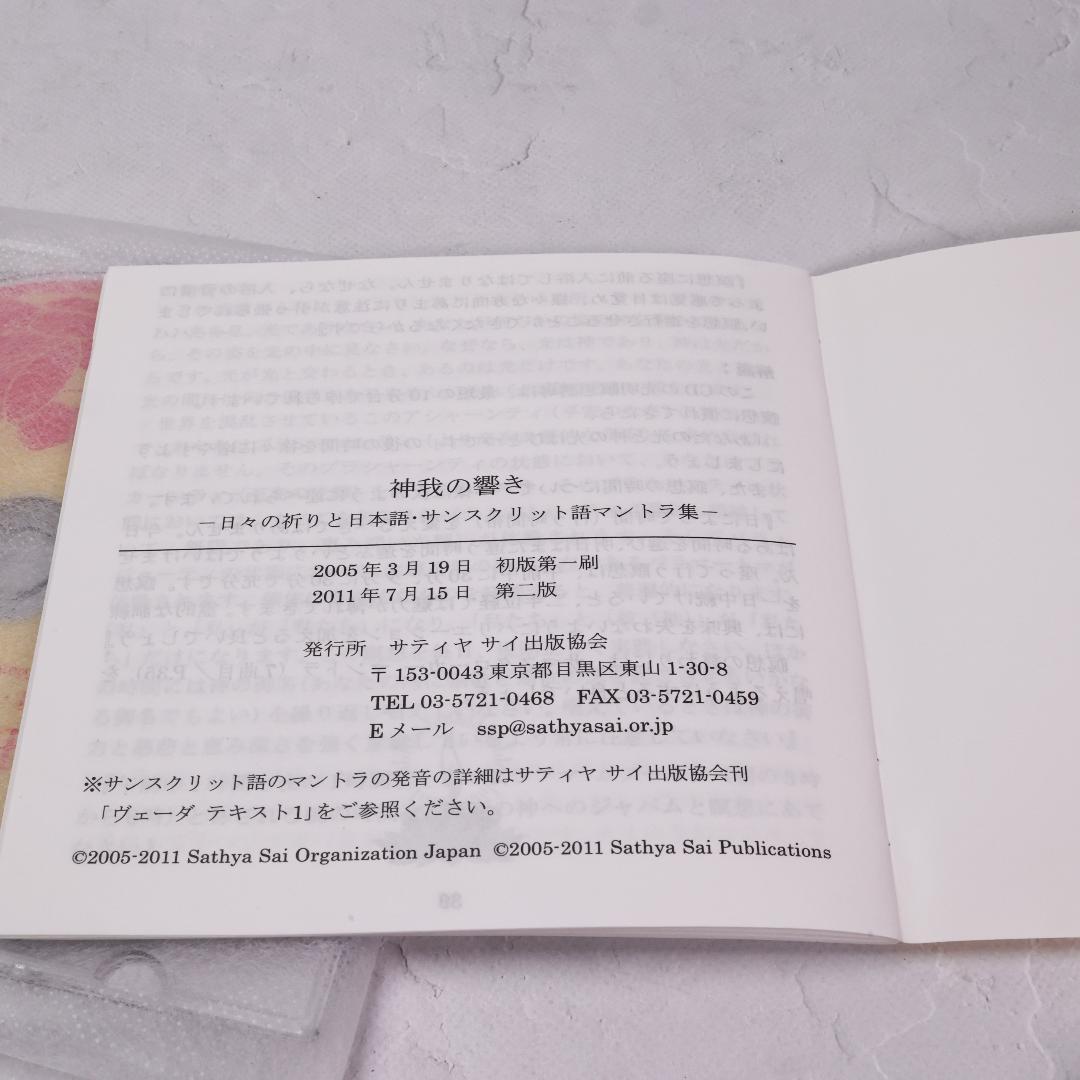 神我の響き
－日々の祈りと日本語・サンスクリット語マントラ集－
2005年3月19日　初版第一刷
2011年7月15日　第二版
発行所　サティヤ サイ出版協会
〒153-0043 東京都目黒区東山 1-30-8
TEL 03-5721-0468　FAX 03-5721-0459
Eメール　ssp@sathyasai.or.jp
※サンスクリット語のマントラの発音の詳細はサティヤ サイ出版協会刊
「ヴェーダ テキスト1」をご参照ください。
©2005-2011 Sathya Sai Organization Japan ©2005-2011 Sathya Sai Publications